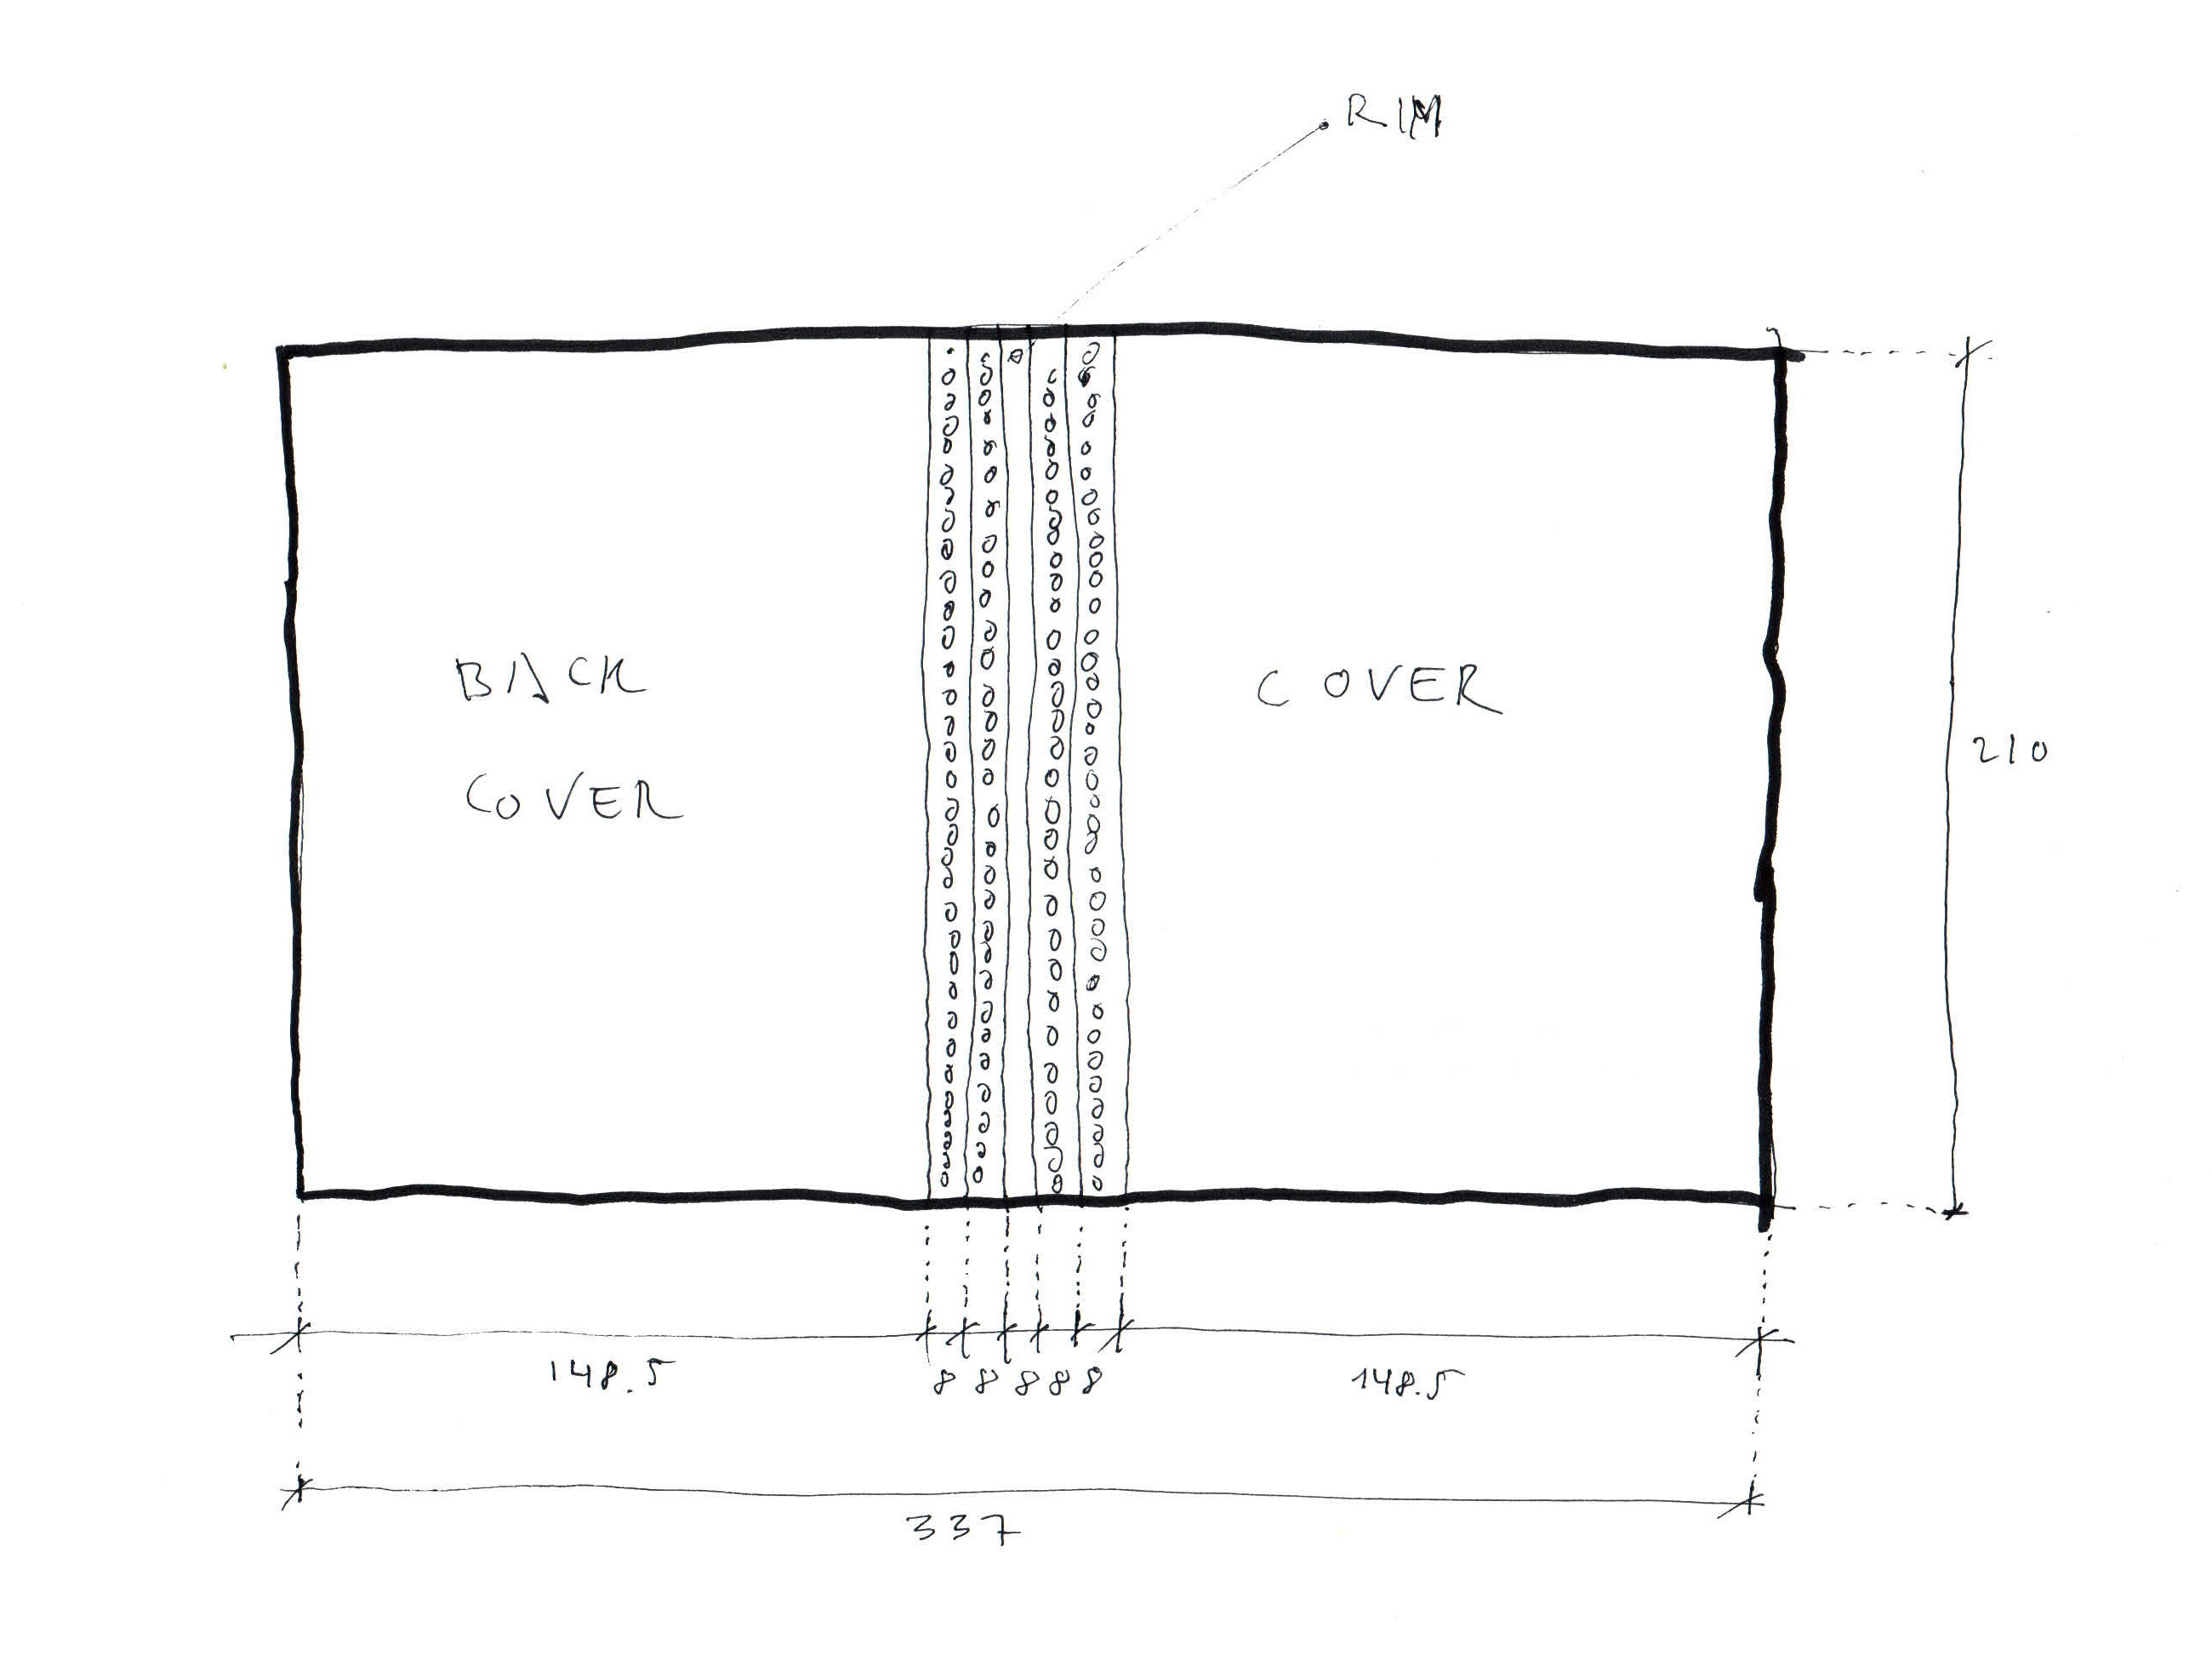 RIM
BACK
COVER
COVER
210
148.5
8 8 8 8 8
148.5
337